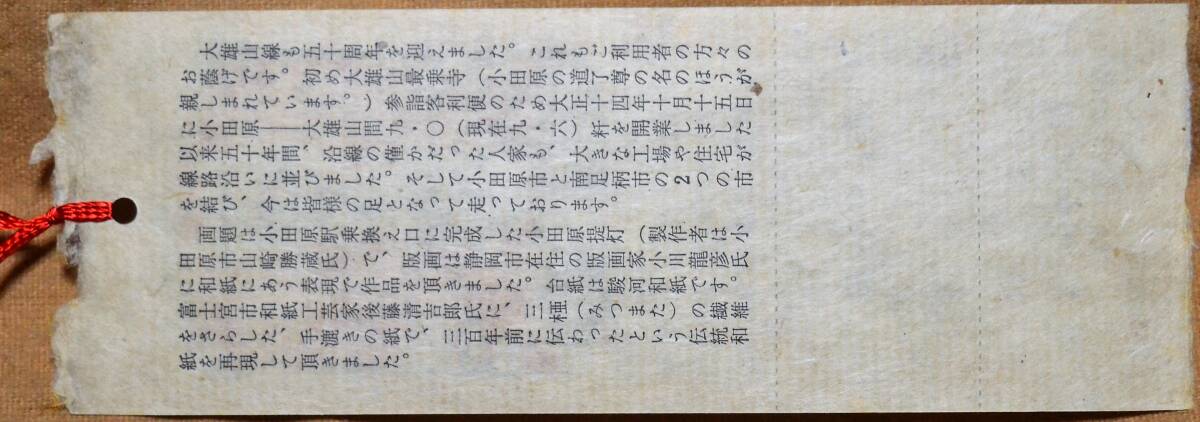 大雄山線も五十周年を迎えました。これもご利用者の方々の
お蔭げです。初め大雄山最乗寺（小田原の道了尊の名のほうが
親しまれています。）参詣客利便のため大正十四年十月十五日
に小田原――大雄山間九・〇（現在九・六）粁を開業しました
以来五十年間、沿線の僅かだった人家も、大きな工場や住宅が
線路沿いに並びました。そして小田原市と南足柄市の２つの市
を結び、今は皆様の足となって走っております。
画題は小田原駅乗換え口に完成した小田原提灯（製作者は小
田原市山崎勝蔵氏）で、版画は静岡市在住の版画家小川龍彦氏
に和紙にあう表現で作品を頂きました。台紙は駿河和紙です。
富士宮市和紙工芸家後藤清吉郎氏に、三椏（みつまた）の繊維
をさらした、手漉きの紙で、三百年前に伝わったという伝統和
紙を再現して頂きました。